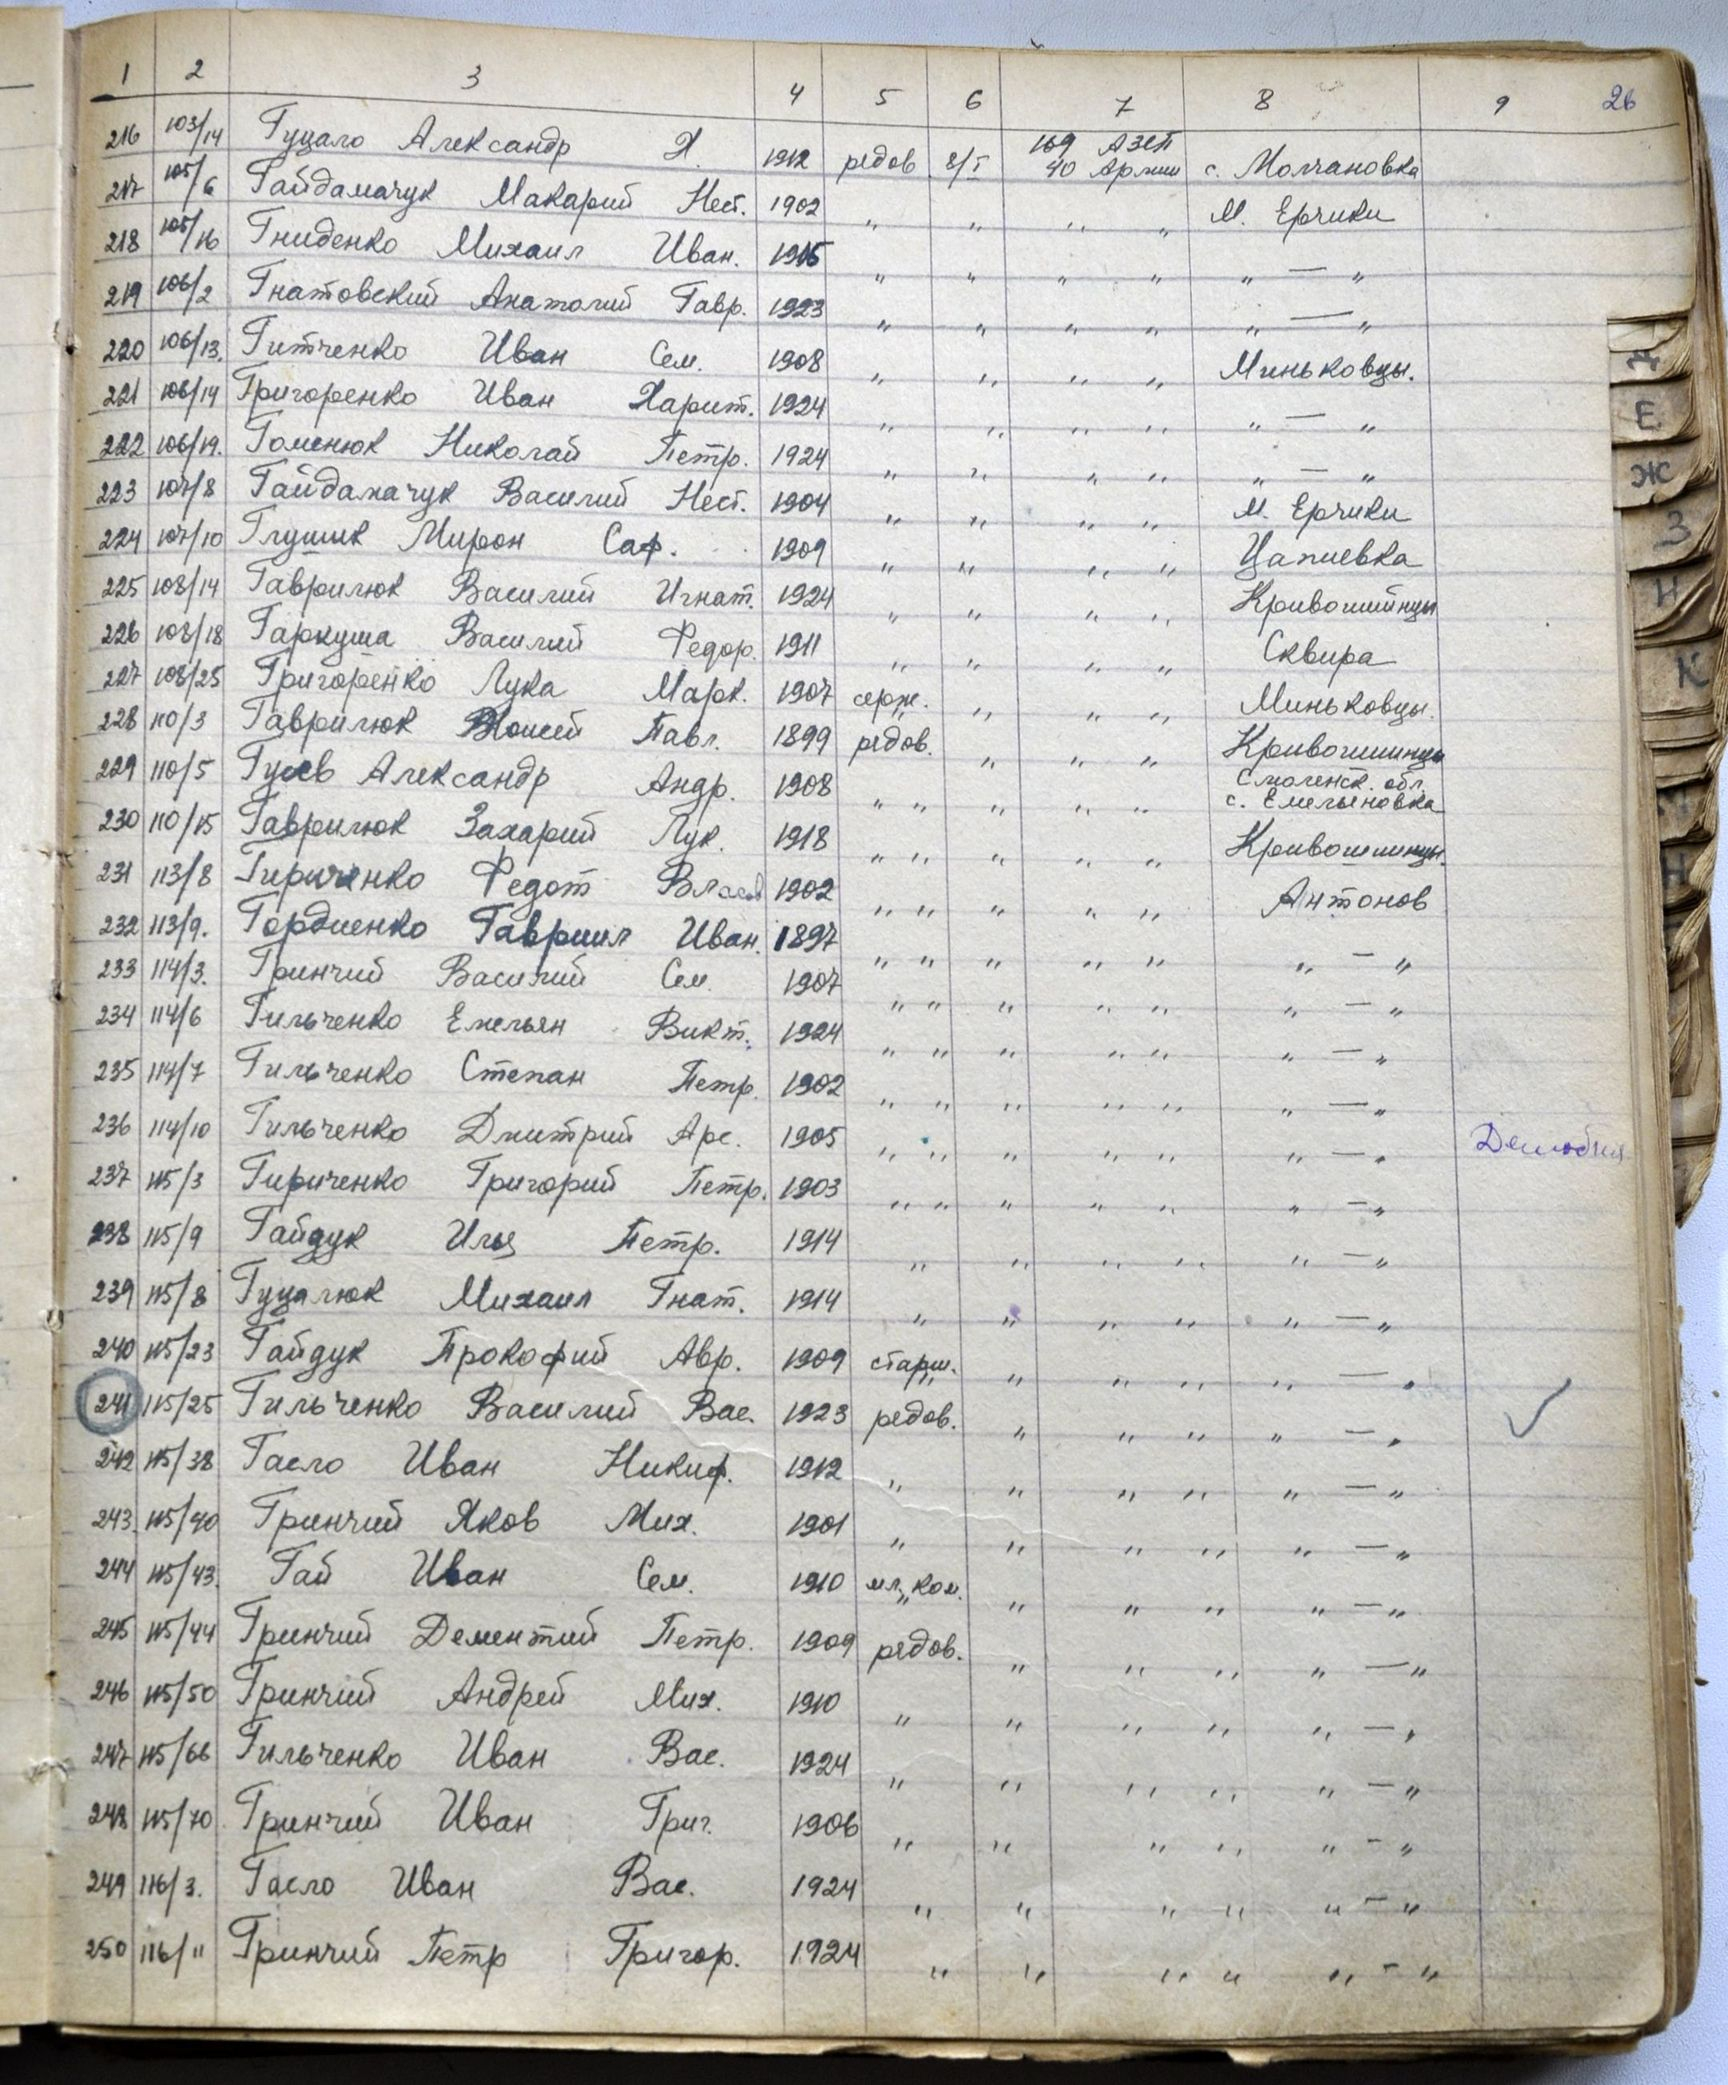 1 2 3 4 5 6 7 8 9 26
216 103/14 Гуцало Александр Я. 1912 редов б/п 169 АЗСП 40 Армии с. Молчановка
217 105/6 Гайдамачук Макарий Нест. 1902 „ „ „ „ М. Ерчики
218 105/16 Гниденко Михаил Иван. 1915 „ „ „ „ „ — „
219 106/2 Гнатовский Анатолий Гавр. 1923 „ „ „ „ „ — „
220 106/13. Гитченко Иван Сем. 1908 „ „ „ „ Миньковцы.
221 106/14 Григоренко Иван Харит. 1924 „ „ „ „ „ — „
222 106/19. Гоменюк Николай Петр. 1924 „ „ „ „ „ — „
223 107/8 Гайдамачук Василий Нест. 1904 „ „ „ „ М. Ерчики
224 107/10 Глушик Мирон Саф. 1909 „ „ „ „ Цапиевка
225 108/14 Гаврилюк Василий Игнат. 1924 „ „ „ „ Кривошийнцы
226 108/18 Гаркуша Василий Федор. 1911 „ „ „ „ Сквира
227 108/25 Григоренко Лука Марк. 1907 серж. „ „ „ Миньковцы.
228 110/3 Гаврилюк Моисей Павл. 1899 редов. „ „ „ Кривошиинцы
229 110/5 Гусев Александр Андр. 1908 „ „ „ „ „ Смоленск. обл. с. Емельяновка
230 110/15 Гаврилюк Захарий Лук. 1918 „ „ „ „ „ Кривошиинцы.
231 113/8 Гириченко Федот Власов 1902 „ „ „ „ „ Антонов
232 113/9. Гордиенко Гавриил Иван. 1897 „ „ „ „ „ „ — „
233 114/3. Гринчий Василий Сем. 1907 „ „ „ „ „ „ — „
234 114/6 Гильченко Емельян Викт. 1924 „ „ „ „ „ „ — „
235 114/7 Гильченко Степан Петр. 1902 „ „ „ „ „ „ — „
236 114/10 Гильченко Дмитрий Арс. 1905 „ „ „ „ „ „ — „
237 115/3 Гириченко Григорий Петр. 1903 „ „ „ „ „ „ — „
238 115/9 Гайдук Илья Петр. 1914 „ „ „ „ „ — „
239 115/8 Гуцалюк Михаил Гнат. 1914 „ „ „ „ „ — „
240 115/23 Гайдук Прокофий Авр. 1909 старш. „ „ „ „ — „
241 115/25 Гильченко Василий Вас. 1923 редов. „ „ „ „ — „ ✓
242 115/38 Гасло Иван Никиф. 1912 „ „ „ „ „ — „
243. 115/40 Гринчий Яков Мих. 1901 „ „ „ „ „ — „
244 115/43. Гай Иван Сем. 1910 мл. ком. „ „ „ „ — „
245 115/44 Гринчий Дементий Петр. 1909 рядов. „ „ „ „ — „
246 115/50 Гринчий Андрей Мих. 1910 „ „ „ „ „ — „
247 115/66 Гильченко Иван Вас. 1924 „ „ „ „ „ — „
248 115/70 Гринчий Иван Григ. 1906 „ „ „ „ „ — „
249 116/3. Гасло Иван Вас. 1924 „ „ „ „ „ — „
250 116/11 Гринчий Петр Григор. 1924 „ „ „ „ „ — „
Д
Е
Ж
З
И
К
Н